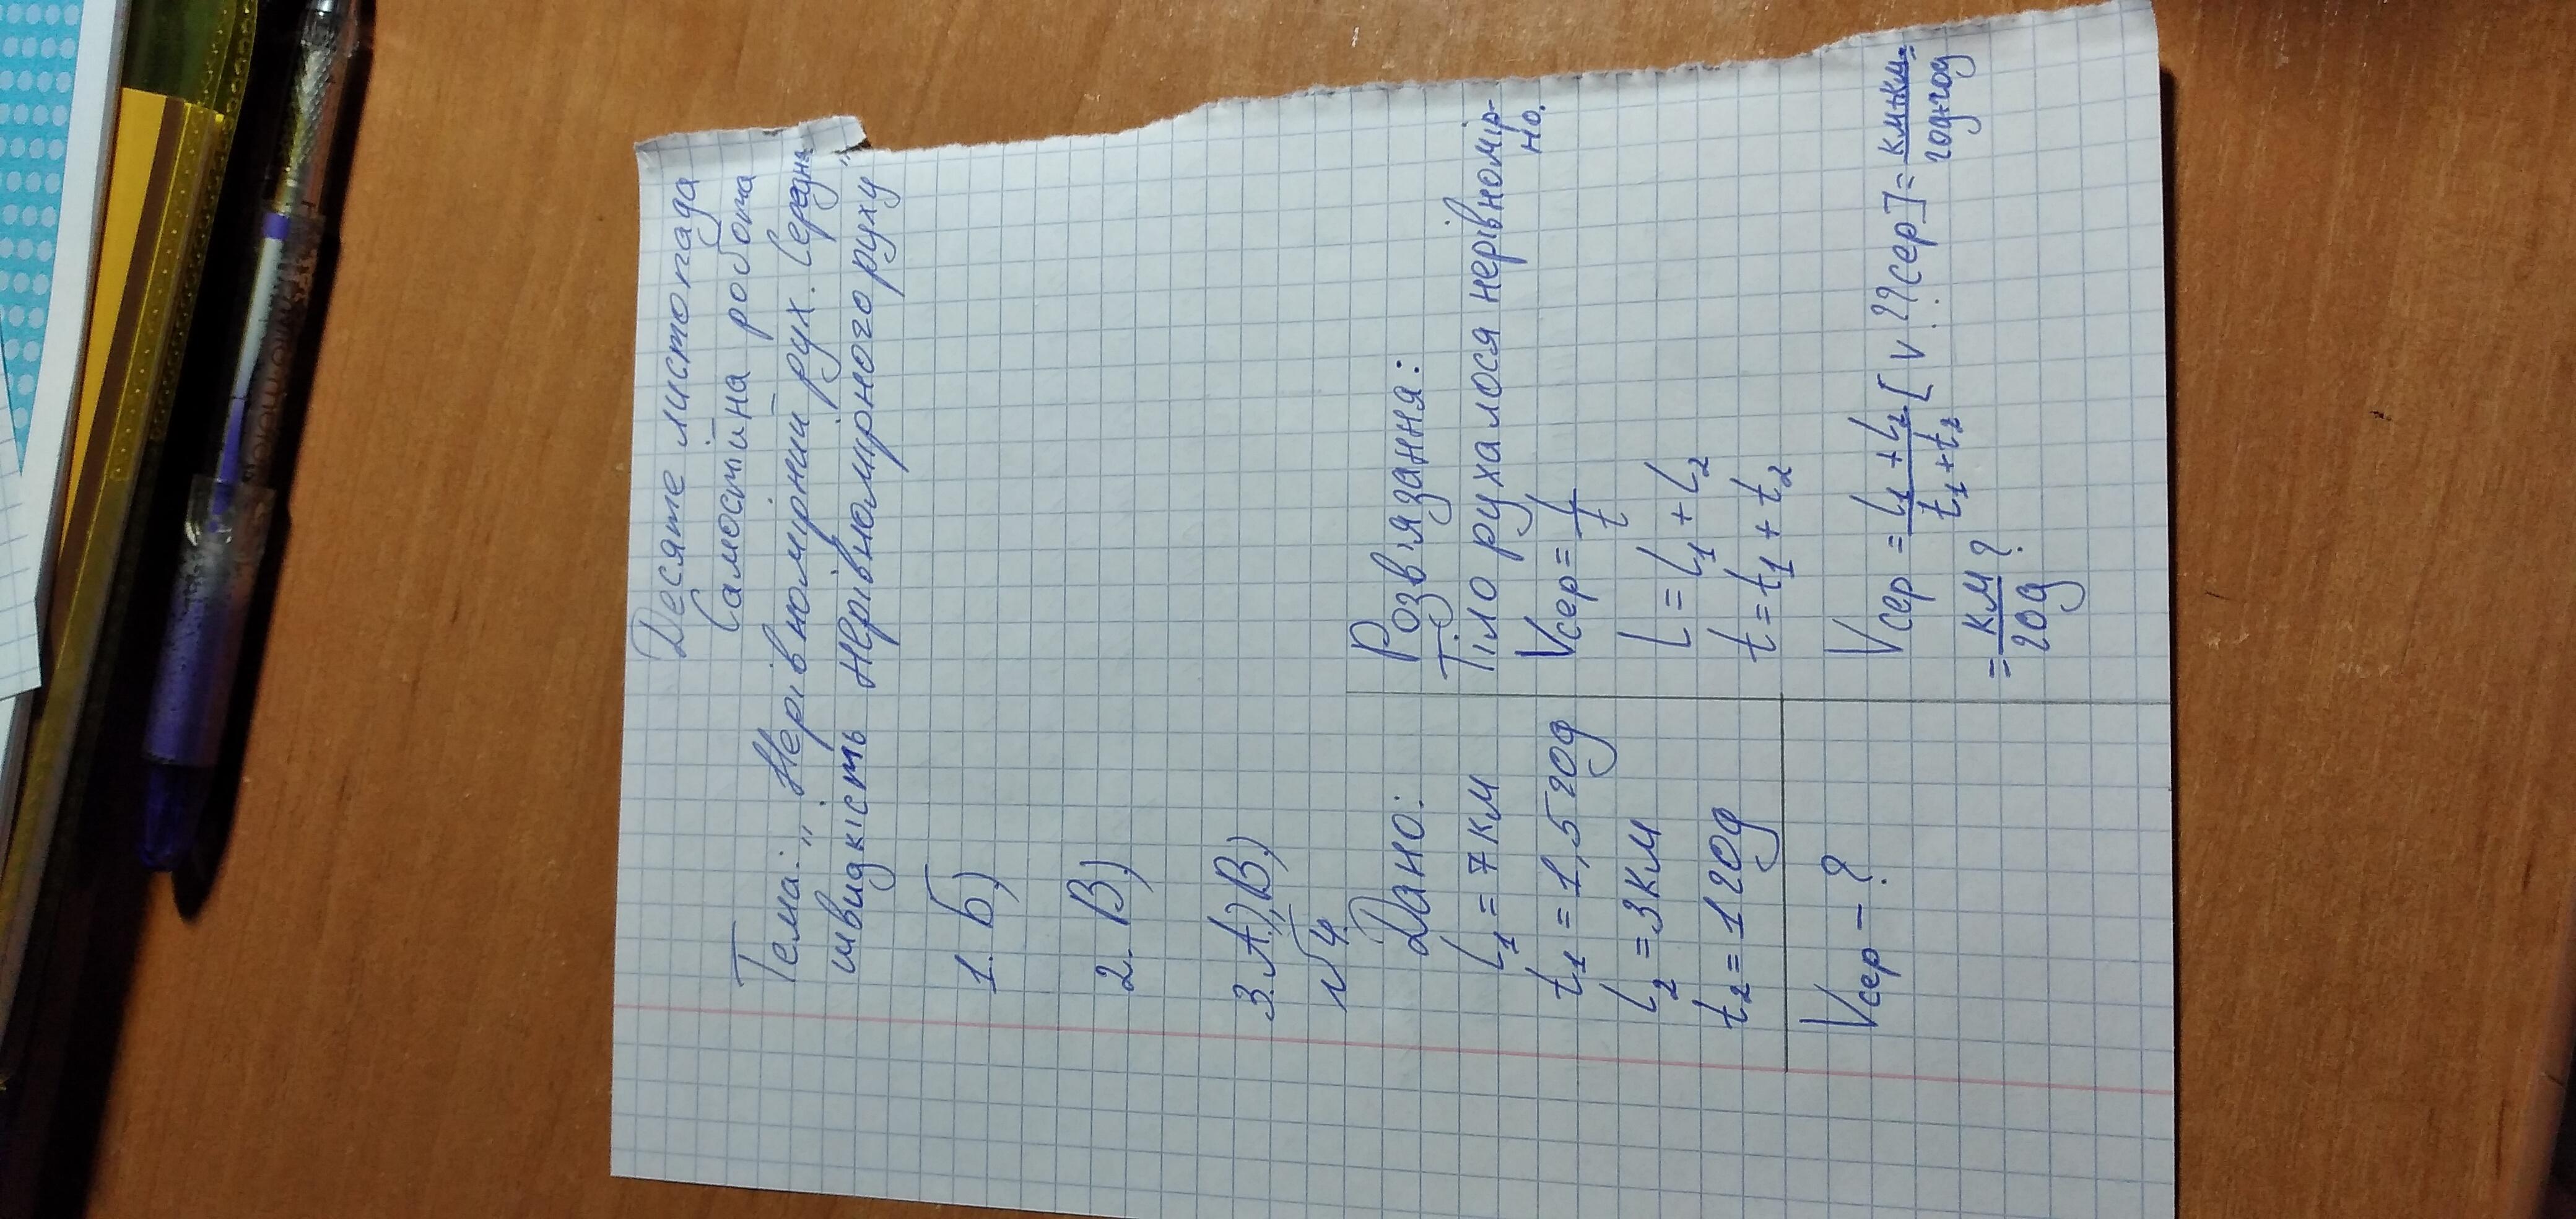 Десяте листопада
Самостійна робота
Тема: „Нерівномірний рух. Середня
швидкість нерівномірного руху"
1. Б)
2. В)
3. А), В)
№4
Дано:
l₁ = 7 км
t₁ = 1,5 год
l₂ = 3 км
t₂ = 1 год
Vсер – ?
Розв'язання:
Тіло рухалося нерівномір-
но.
Vсер = l/t
l = l₁ + l₂
t = t₁ + t₂
Vсер = (l₁ + l₂)/(t₁ + t₂) [V??сер] = (км+км)/(год+год)
= км/год ?